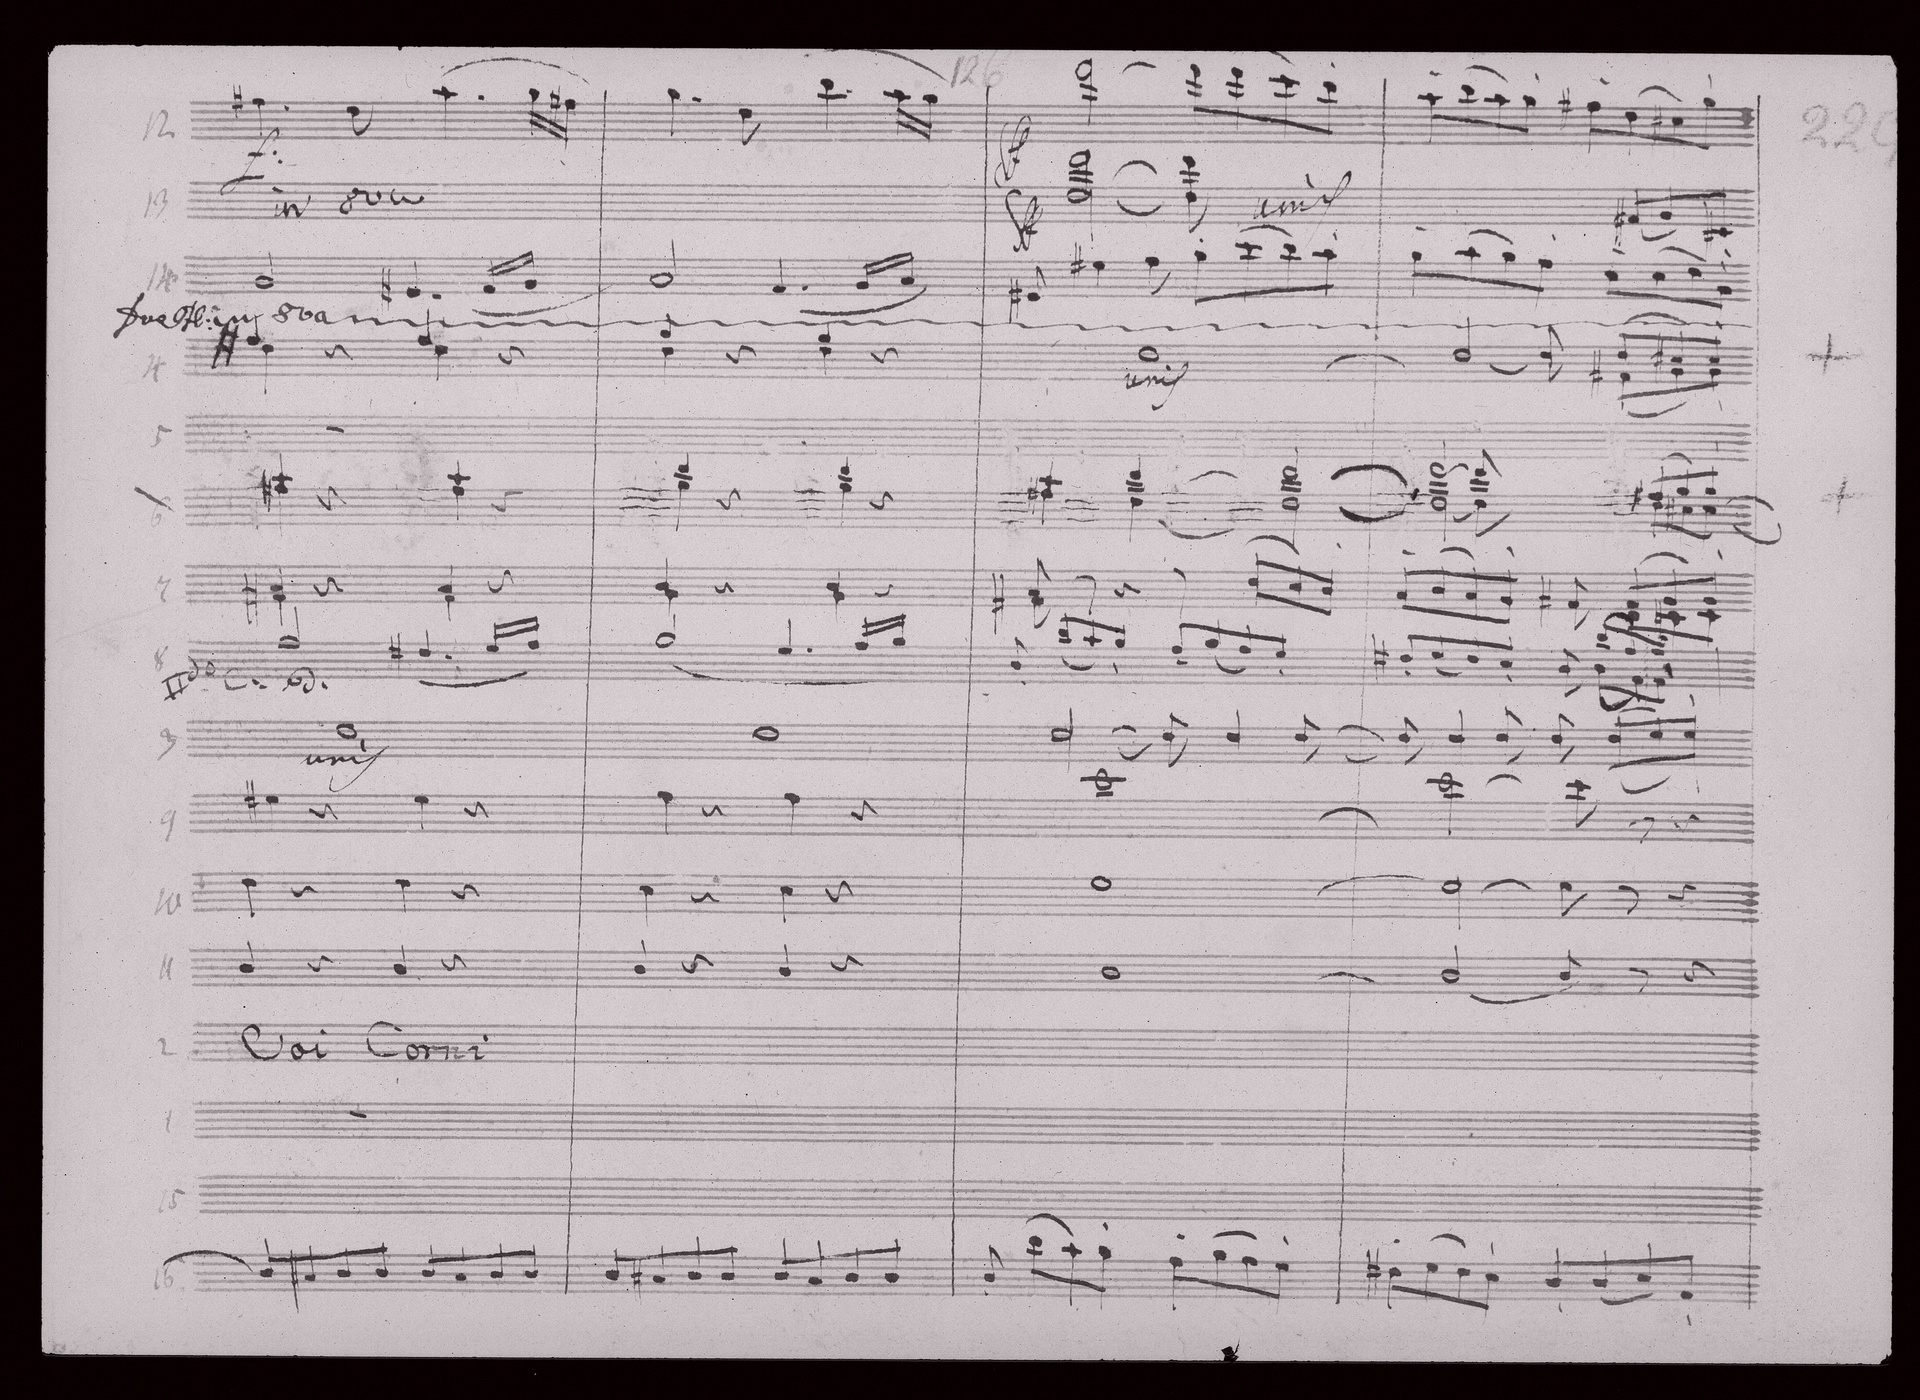 126
229
12
f:
13
in 8va
ff
ff
unis
14
in 8va
4
unis
5
6
7
8
IIdo C. Bd.
3
unis
9
10
11
2
Coi Corni
1
15
16